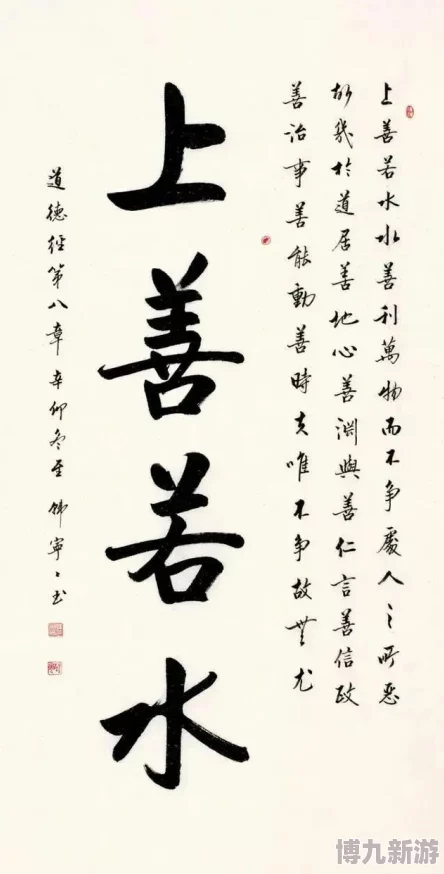 上善若水水善利萬物而不争處人之所惡
故幾於道居善地心善淵與善仁言善信政
善治事善能動善時夫唯不争故無尤
上善若水
道德經第八章 辛卯冬至 寧〻书
博九新游